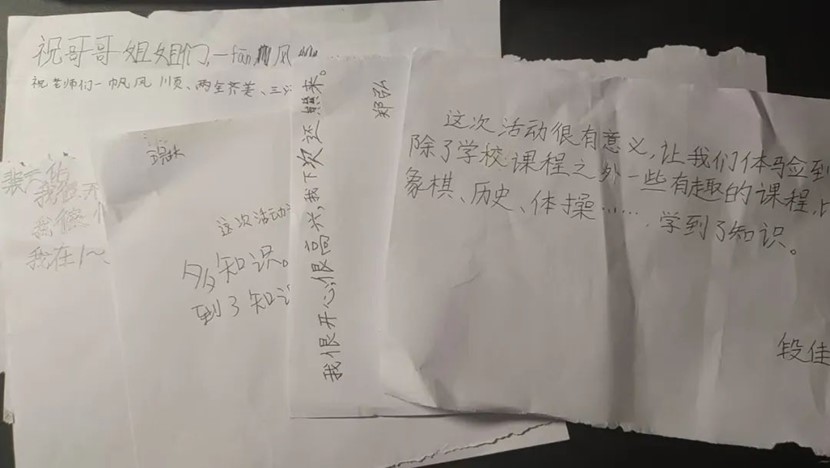 祝哥哥姐姐们,一fān风
祝老师们一帆风顺、两全齐美、三
我
我
我在1~
这次活动
多知识。
到了知识
我很开心,很高兴,我下次还想来。
郑弘
这次活动很有意义,让我们体马佥到
除了学校课程之外一些有趣的课程,比
象棋、历史、体操……,学到了知识。
段佳